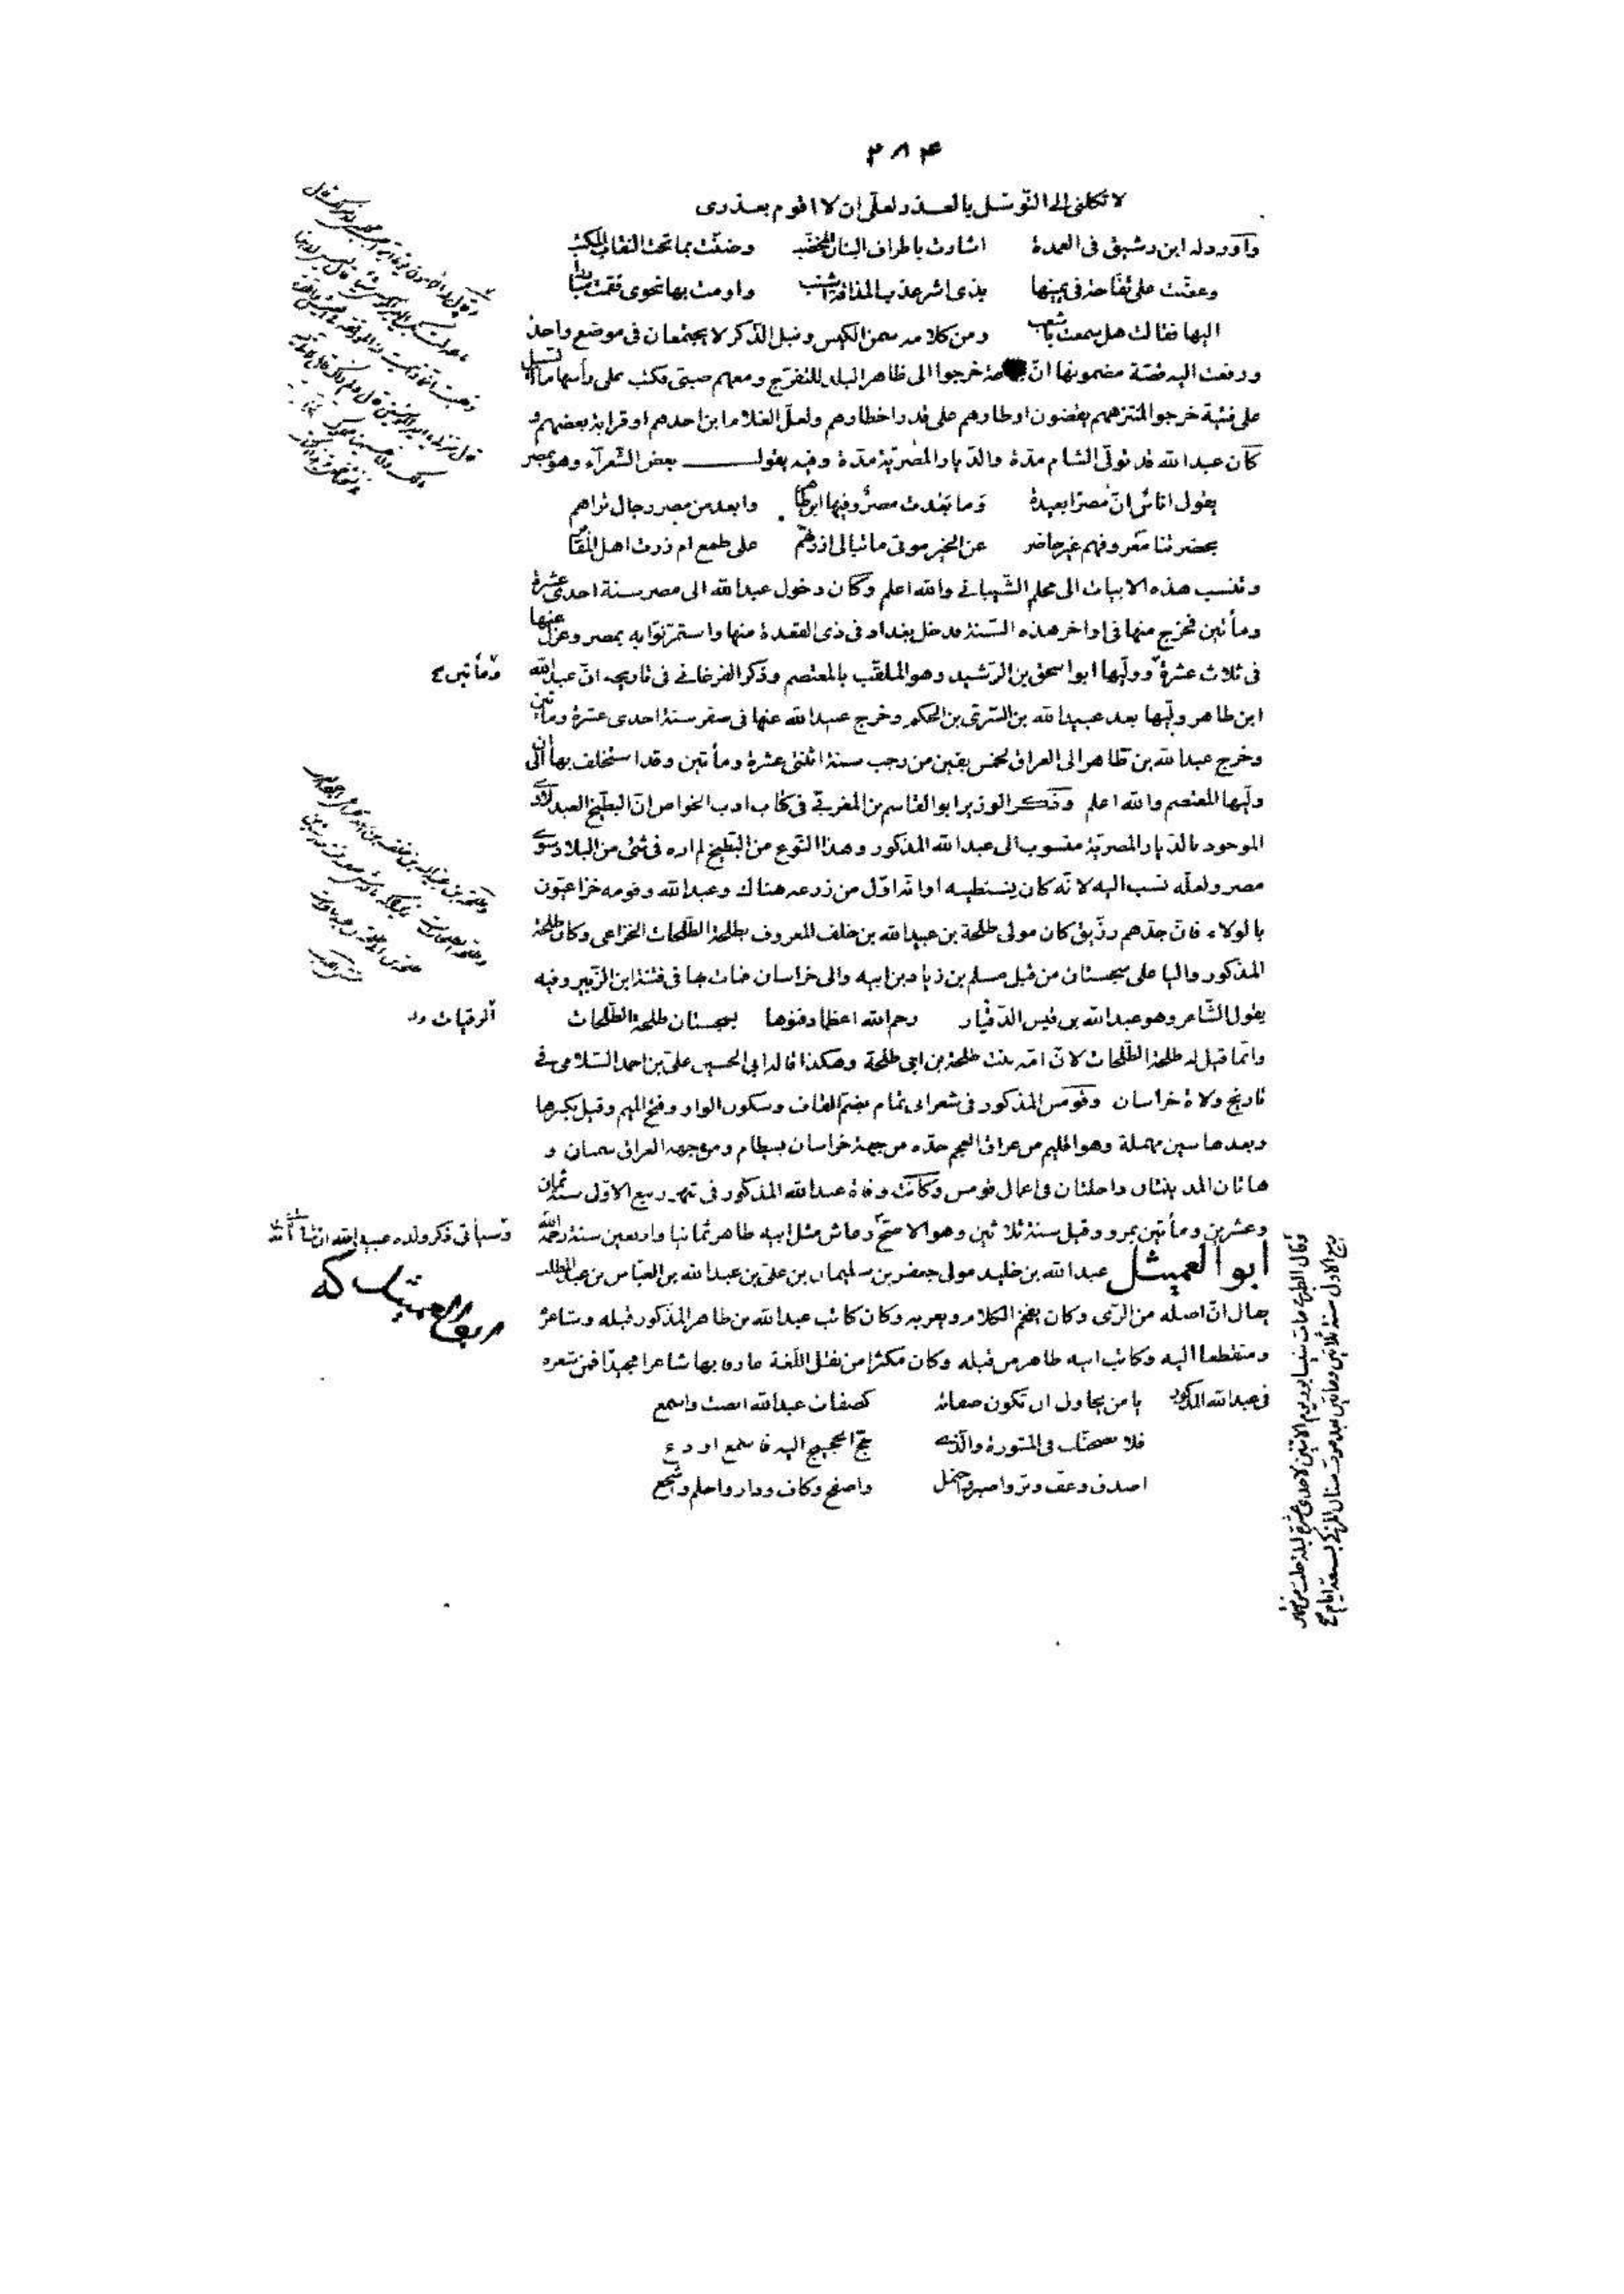 ٢٨٤
لا تكلنى الى التوسّل بالعذر لعلّى ان لا اقوم بعذرى
وآورد له ابن رشيق فى العمدة اشارت باطراف البنان المخضّب وضنّت بما تحت النقاب المكتّب
وعضّت على تفّاحة فى يمينها بذى اشر عذب المذاقة اشنب واومت بها نحوى فقمت مبادرا
اليها فقالت هل سمعت باشعب ومن كلامه سمن الكيس ونبل الذكر لا يجتمعان فى موضع واحد
ورفعت اليه قصّة مضمونها انّ خرجوا الى ظاهر البلد للتفرّج ومعهم صبىّ فكتب على رأسها ما السبيل
على فتية خرجوا لمتنزههم يقضون اوطارهم على قدر اخطارهم ولعلّ الغلام ابن احدهم او قرابة بعضهم و
كان عبدالله قد تولّى الشام مدّة والدّيار المصريّة مدّة وفيه يقول بعض الشعرآء وهو بمصر
يقول اناس انّ مصرًا بعيدة وما بعُدت مصرٌ وفيها ابن طاهر وابعد من مصر رجال تراهم
بحضرتنا معروفهم غير حاضر عن الخير موتى ما تبالى ازرتهم على طمع ام زرت اهل المقابر
وتنسب هذه الابيات الى محلم الشّيبانى والله اعلم وكان دخول عبدالله الى مصر سنة احدى عشرة
ومأتين فخرج منها فى اواخر هذه السّنة فدخل بغداد فى ذى القعدة منها واستمرّ نوّابه بمصر وعزل عنها
فى ثلاث عشرة وولّيها ابو اسحق بن الرّشيد وهو الملقّب بالمعتصم وذكر الفرغانى فى تاريخه انّ عبدالله
ومأتين
ابن طاهر وليّها بعد عبيدالله بن السّرىّ بن الحكم وخرج عبيدالله عنها فى صفر سنة احدى عشرة ومأتين
وخرج عبدالله بن طاهر الى العراق لخمس بقين من رجب سنة اثنتى عشرة ومأتين وقد استخلف بها الى ان
وليّها المعتصم والله اعلم وذكر الوزير ابو القاسم بن المغربىّ فى كتاب ادب الخواص انّ البطّيخ العبدلاوى
الموجود بالدّيار المصريّة منسوب الى عبدالله المذكور وهذا النّوع من البطّيخ لم اره فى شئ من البلاد سوى
مصر ولعلّه نسب اليه لانّه كان يستطيبه او انّه اوّل من زرعه هناك وعبدالله وقومه خزاعيّون
بالولاء فانّ جدّهم رزيق كان مولى طلحة بن عبيدالله بن خلف المعروف بطلحة الطّلحات الخزاعى وكان طلحة
المذكور واليا على سجستان من قبل مسلم بن زياد بن ابيه والى خراسان فمات بها فى فتنة ابن الزّبير وفيه
يقول الشّاعر وهو عبدالله بن قيس رحم الله اعظما دفنوها بسجستان طلحة الطّلحات
الرقيات
وانّما قيل له طلحة الطّلحات لانّ امّه بنت طلحة بن ابى طلحة وهكذا قاله ابى الحسين علىّ بن احمد السّلامى فى
تاريخ ولاة خراسان وقومس المذكور فى شعر ابى تمام بضمّ القاف وسكون الواو وفتح الميم وقيل بكسرها
وبعدها سين مهملة وهو اقليم من عراق العجم حدّه من جهة خراسان بسطام ومن جهة العراق سمنان و
هاتان المدينتان داخلتان فى اعمال قومس وكانت وفاة عبدالله المذكور فى شهر ربيع الاوّل سنة ثمان
وعشرين ومأتين بمرو وقيل سنة ثلاثين وهو الاصحّ وعاش مثل ابيه طاهر ثمانيا واربعين سنة رحمه الله
وسيأتى ذكر ولده عبيدالله ان شاء الله
ابو العميثل عبدالله بن خليد مولى جعفر بن سليمان بن علىّ بن عبدالله بن العبّاس بن عبدالمطلب
ابو العميثل
يقال انّ اصله من الرّى وكان يفخم الكلام ويعربه وكان كاتب عبدالله بن طاهر المذكور قبله وشاعره
ومنقطعا اليه وكاتب ابيه طاهر من قبله وكان مكثرا من نقل اللّغة عارفا بها شاعرا مجيدًا فمن شعره
فى عبدالله المذكور يا من يحاول ان تكون صفاته كصفات عبدالله انصت واسمع
فلا نصحنّك فى المشورة والّذى حجّ الحجيج اليه فاسمع او دع
اصدق وعفّ وبرّ واصبر واحتمل واصفح وكاف ودار واحلم واشجع
وقال الطبرى مات بنيسابور يوم الاثنين لاحدى عشرة ليلة خلت من شهر
ربيع الاول سنة ثلاثين ومأتين بعد موت اشناس التركى بتسعة ايام